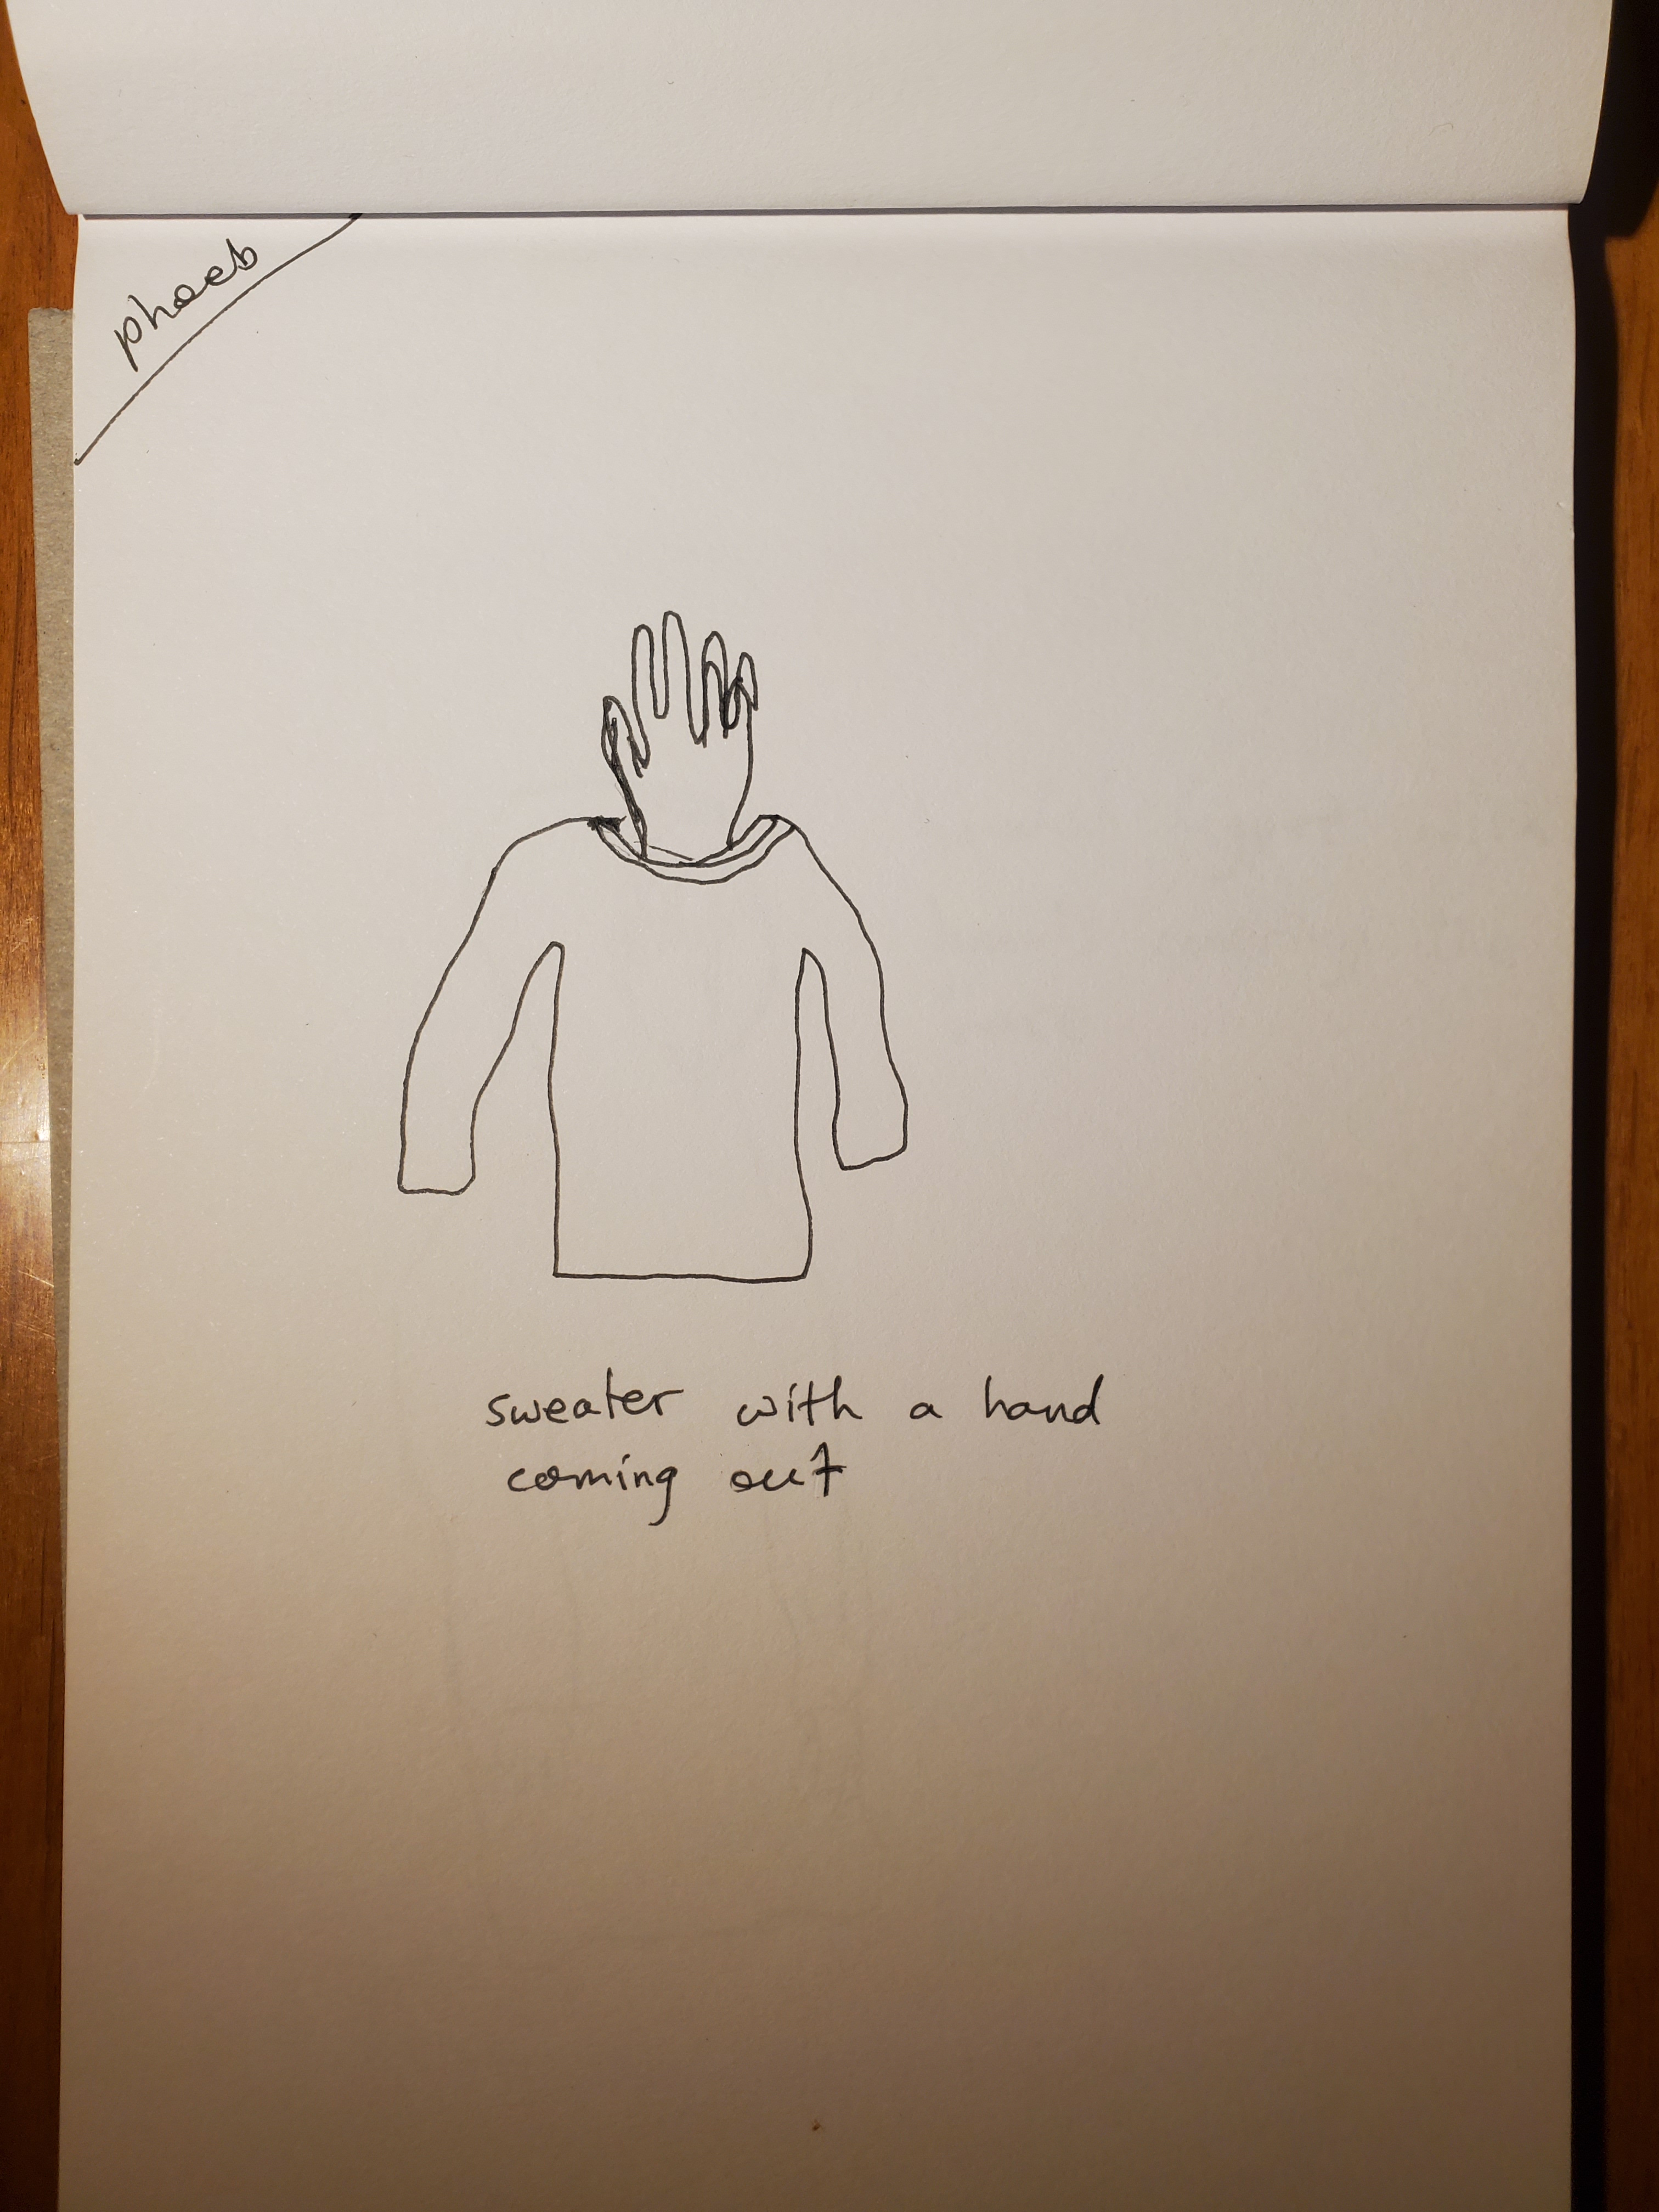 phoeb
sweater with a hand
coming out